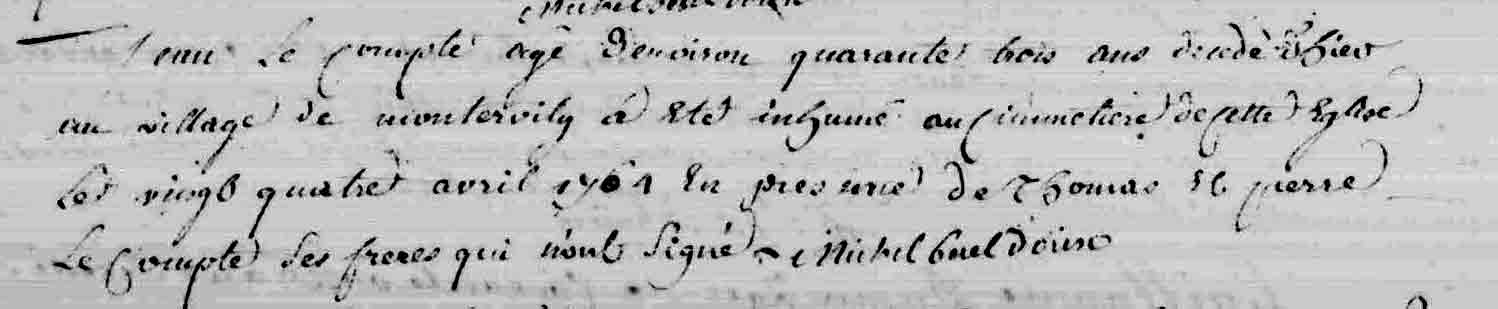 Jean Le Compte agé d'environ quarante trois ans decedé d'hier
au village de montervily a Eté inhumé au Cimmetiere de Cette Eglise
Le vingt quatre avril 1761 En presence de Thomas et pierre
Le Compte ses freres qui n'ont Signé Michel